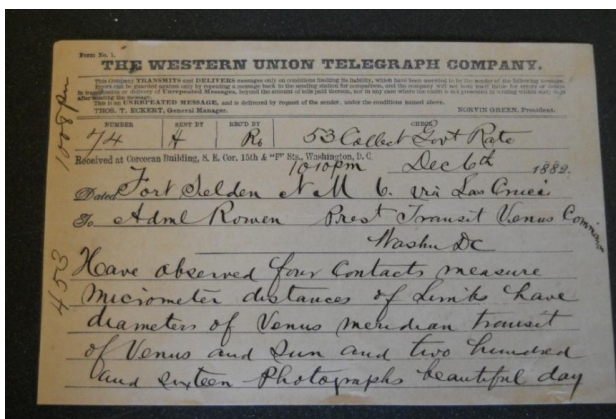 Form No. 1.
THE WESTERN UNION TELEGRAPH COMPANY.
This Company TRANSMITS and DELIVERS messages only on conditions limiting its liability, which have been assented to by the sender of the following message.
Errors can be guarded against only by repeating a message back to the sending station for comparison, and the company will not hold itself liable for errors or delays
in transmission or delivery of Unrepeated Messages, beyond the amount of tolls paid thereon, nor in any case where the claim is not presented in writing within sixty days
after sending the message.
This is an UNREPEATED MESSAGE, and is delivered by request of the sender, under the conditions named above.
THOS. T. ECKERT, General Manager. NORVIN GREEN, President.
NUMBER SENT BY REC'D BY CHECK
74 H Ro 53 Collect Govt Rate
Received at Corcoran Building, S. E. Cor. 15th & "F" Sts., Washington, D. C.
1010pm Dec 6th 1882.
Dated Fort Selden N M 6. via Las Cruces
To Adml Rowen Prest Transit Venus Commis
Washn DC
Have observed four Contacts measure
micrometer distances of Limbs have
diameters of Venus meridian transit
of Venus and Sun and two hundred
and sixteen Photographs beautiful day
1008pm
453